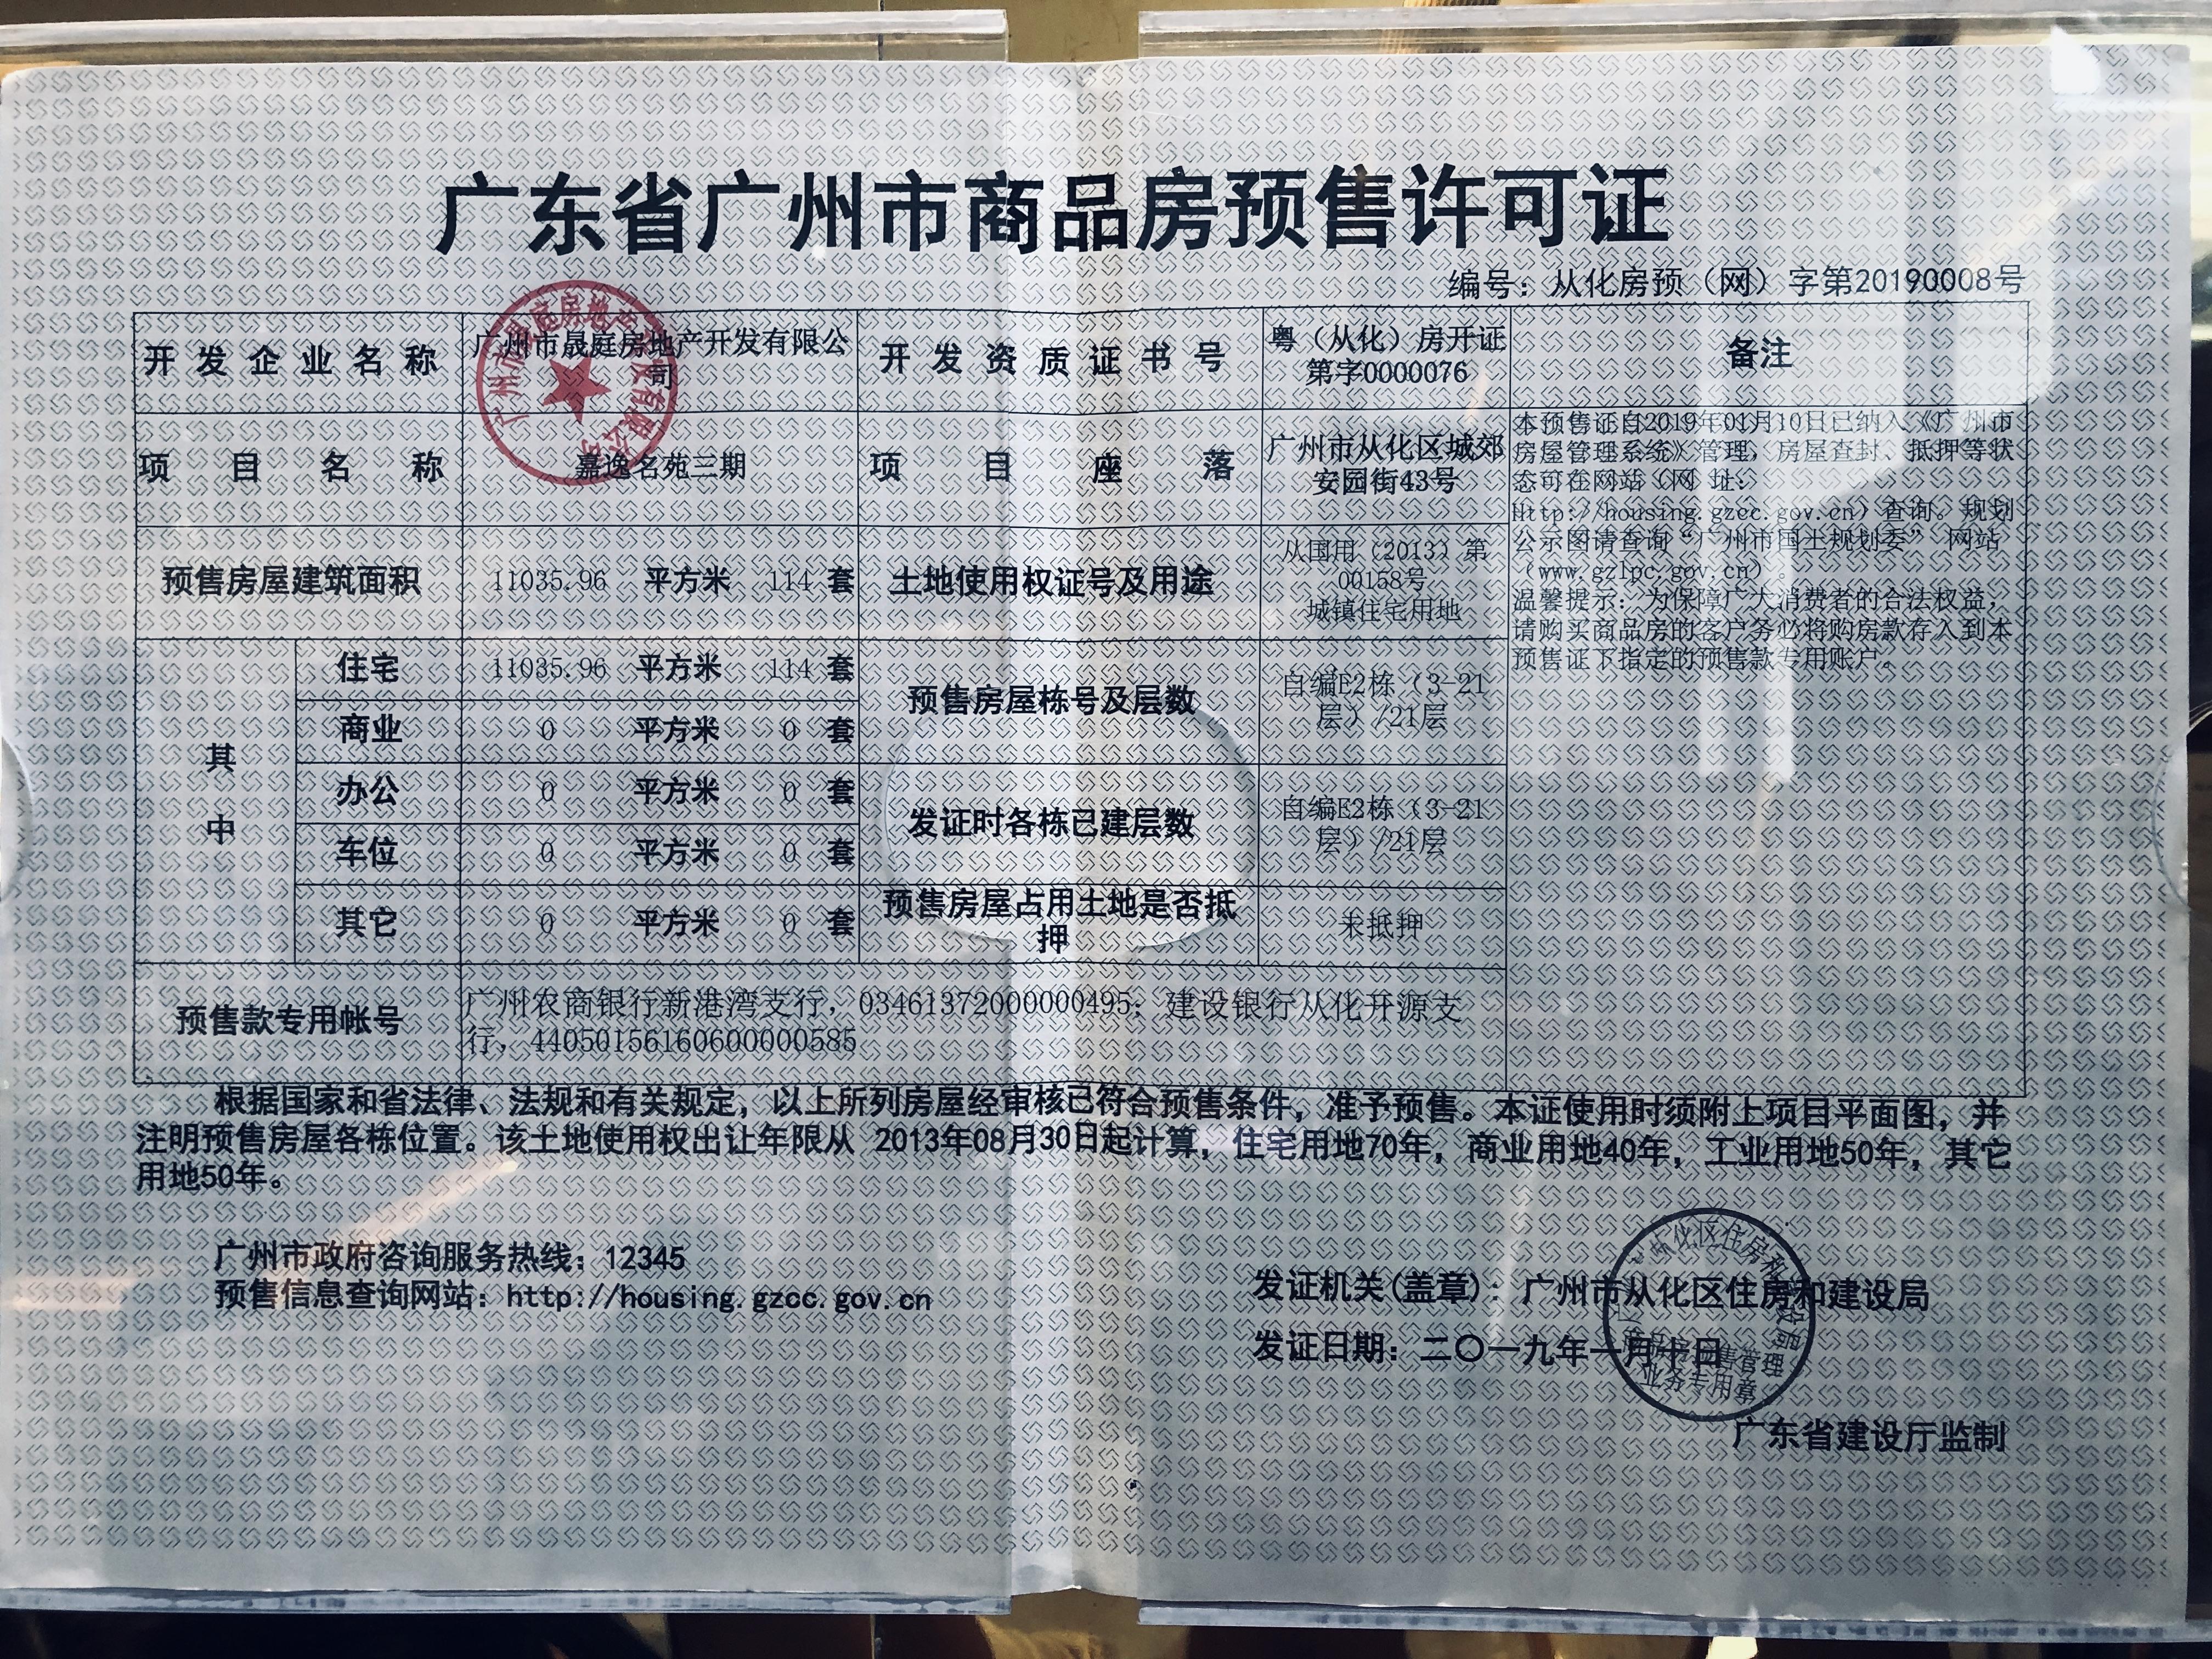 广东省广州市商品房预售许可证
编号：从化房预（网）字第20190008号
开发企业名称
广州市晟庭房地产开发有限公
司
开发资质证书号
粤（从化）房开证
第字0000076
备注
项目名称
嘉逸名苑三期
项目座落
广州市从化区城郊
安园街43号
本预售证自2019年01月10日已纳入《广州市
房屋管理系统》管理，房屋查封、抵押等状
态可在网站（网 址：
Http://housing.gzcc.gov.cn）查询。规划
公示图请查询“广州市国土规划委” 网站
（www.gzlpc.gov.cn）。
温馨提示：为保障广大消费者的合法权益，
请购买商品房的客户务必将购房款存入到本
预售证下指定的预售款专用账户。
预售房屋建筑面积
11035.96 平方米 114 套
土地使用权证号及用途
从国用（2013）第
00158号
城镇住宅用地
其
中
住宅
11035.96 平方米 114 套
商业
0 平方米 0 套
预售房屋栋号及层数
自编E2栋（3-21
层）/21层
办公
0 平方米 0 套
车位
0 平方米 0 套
发证时各栋已建层数
自编E2栋（3-21
层）/21层
其它
0 平方米 0 套
预售房屋占用土地是否抵
押
未抵押
预售款专用帐号
广州农商银行新港湾支行，03461372000000495；建设银行从化开源支
行，44050156160600000585
根据国家和省法律、法规和有关规定，以上所列房屋经审核已符合预售条件，准予预售。本证使用时须附上项目平面图，并
注明预售房屋各栋位置。该土地使用权出让年限从 2013年08月30日起计算，住宅用地70年，商业用地40年，工业用地50年，其它
用地50年。
广州市政府咨询服务热线：12345
预售信息查询网站：http://housing.gzcc.gov.cn
发证机关(盖章)：广州市从化区住房和建设局
发证日期：二〇一九年一月十日
业务专用章
广东省建设厅监制